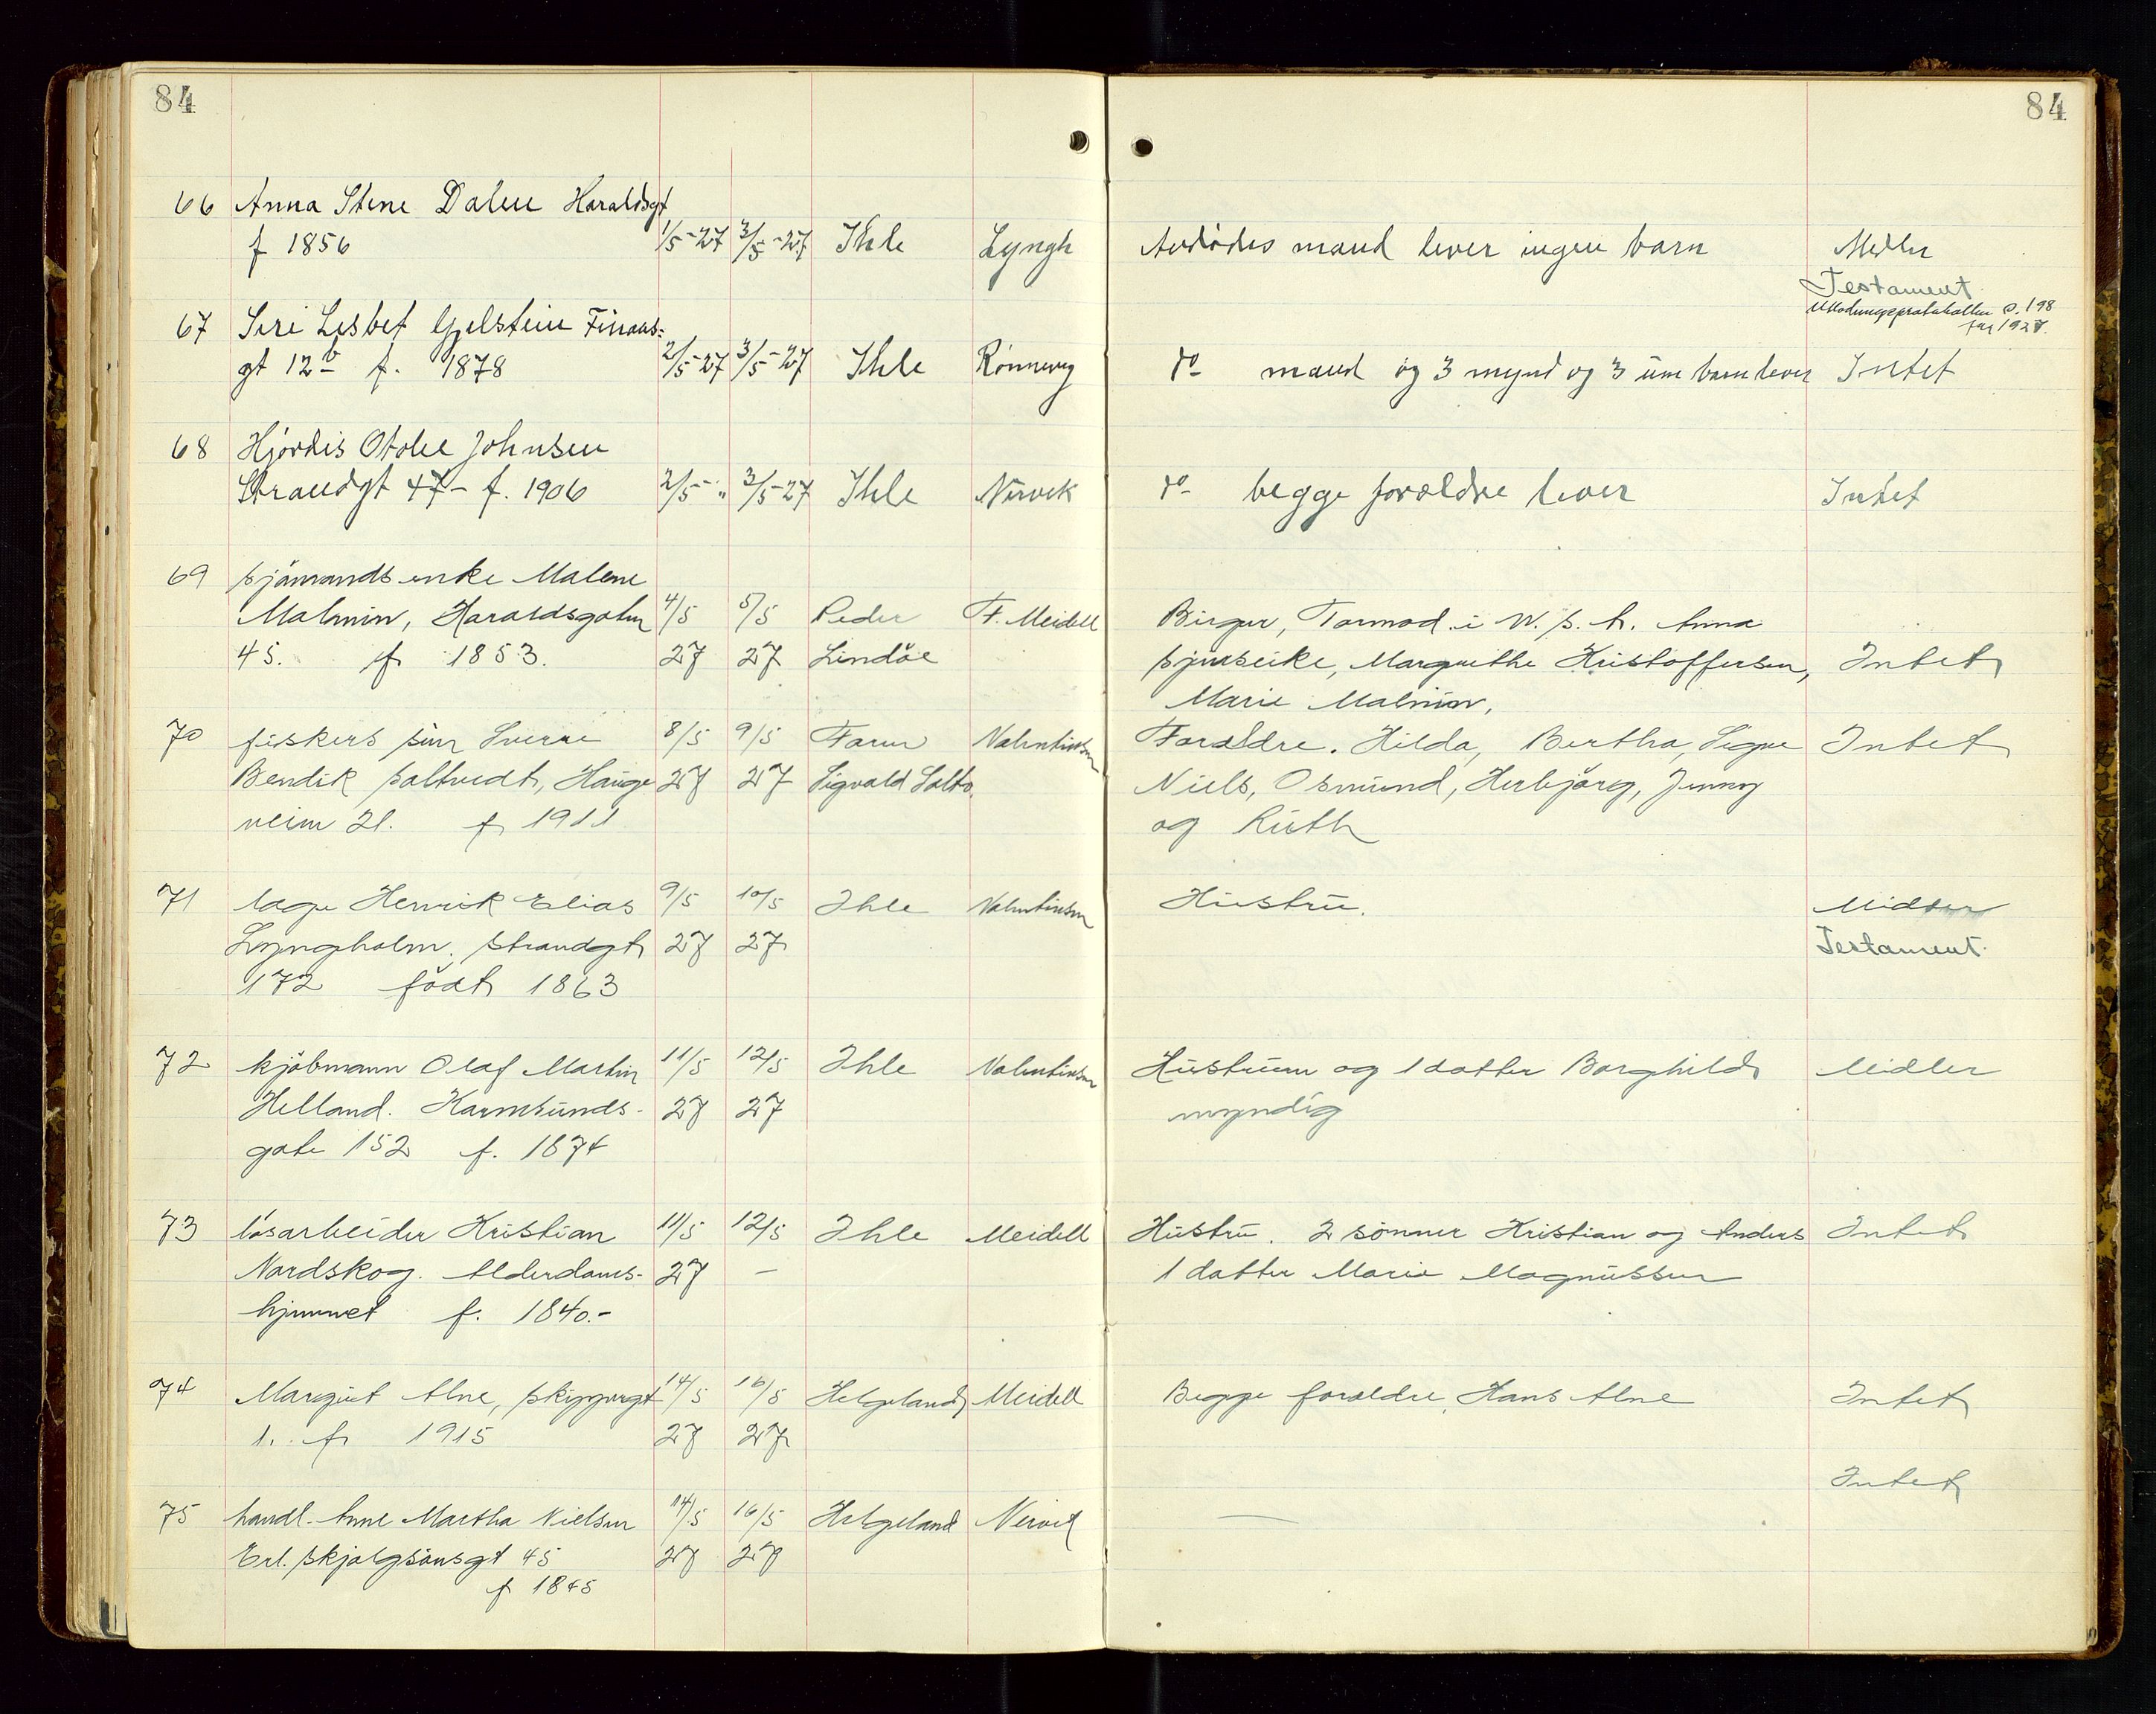 84
84
66 Anna Stene Dalen Haraldsgt
f 1856 1/5-27 3/5-27 Ihle Lyngh Avdødes mand lever ingen barn Midler
Testament
Utlodningsprotokollen s. 198
for 1927.
67 Siri Lisbet Gjelstein Finans-
gt 12b f. 1878 2/5-27 3/5-27 Ihle Rønnevig do mand og 3 mynd og 3 um barn lever Intet
68 Hjørdis Otolie Johnsen
Strandgt 47- f. 1906 2/5-" 3/5-27 Ihle Nervik do begge forældre lever Intet
69 sjömands enke Malene
Malmin, Haraldsgaten 4/5 5/5 Peder F. Meidell Birger, Tormod i W. s. A. Anna
45. f 1853. 27 27 Lindöe Margrethe Kristoffersen, Intet
Marie Malmin,
70 fiskers sön Sverre 8/5 9/5 Faren Valentinsen Forældre. Hilda, Bertha, Signe Intet
Bendik Saltvedt, Hauge 27 27 Sigvald Saltv. Niels, Osmund, Herbjörg, Jenny
veien 21. f 1911 og Ruth
71 læge Henrik Elias 9/5 10/5 Ihle Valentinsen Hustru. Midler
Lyngholm, Strandgt 27 27 Testament
172 födt 1863
72 kjöbmann Olaf Martin 11/5 12/5 Ihle Valentinsen Hustruen og 1 datter Borghild Midler
Helland. Karmsunds- 27 27 myndig
gate 152 f. 1874
73 lösarbeider Kristian 11/5 12/5 Ihle Meidell Hustru. 2 sönner Kristian og Anders Intet
Nordskog. Alderdoms- 27 — 1 datter Marie Magnussen
hjemmet f. 1840.-
74 Margit Alne, Skippergt 14/5 16/5 Helgeland Meidell Begge forældre, Hans Alne Intet
1. f 1915 27 27
Intet
75 handl. Anne Martha Nielsen 14/5 16/5 Helgeland Nervik —
Erl. Skjalgsönsgt 45 27 27
f 1845